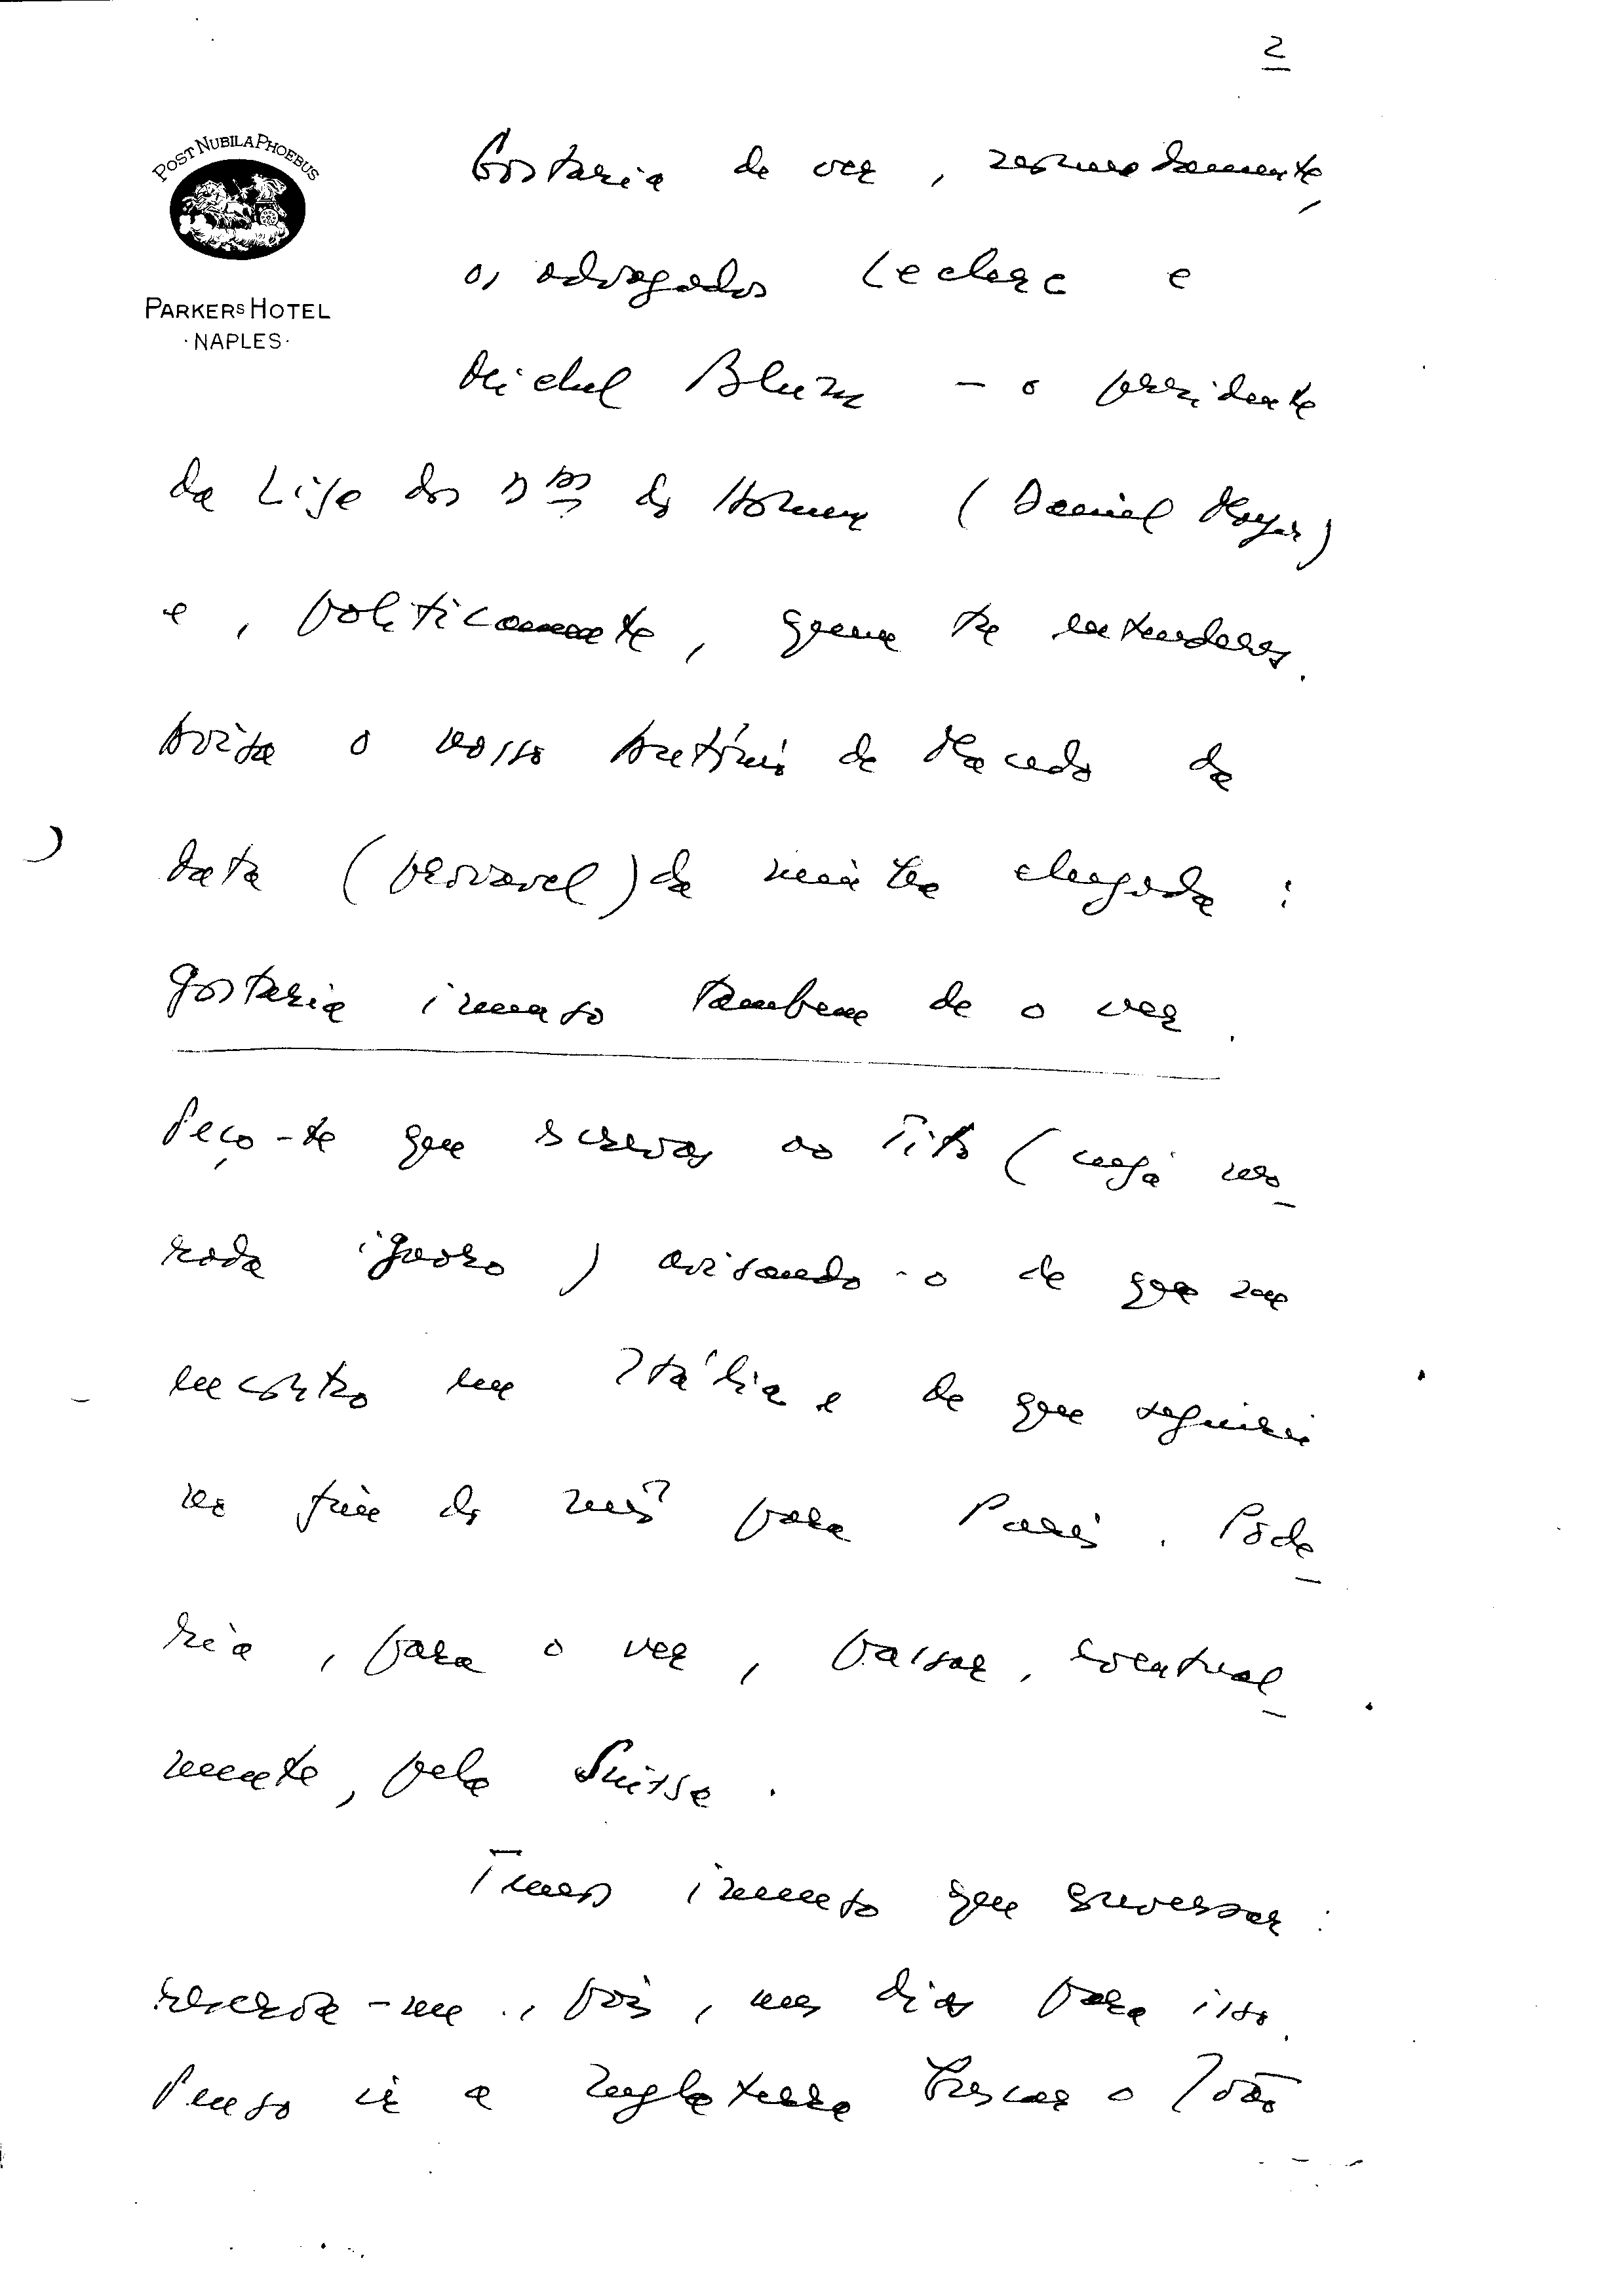 2
POST NUBILA PHOEBUS
PARKERS HOTEL
·NAPLES·
Gostaria de ver,
os advogados Leclerc e
Michel Blum - o presidente
da Liga dos Dtos do Homem (Daniel Mayer)
e, politicamente, quem tu entenderes.
Avisa o nosso António de Macedo da
data (provavel) da minha chegada:
gostaria imenso tambem de o ver.
Peço-te que escrevas ao Tito (cuja mo-
rada ignoro) avisando-o de que me
encontro em Itália e de que seguirei
no fim do mês para Paris. Pode-
ria, para o ver, passar, eventual-
mente, pela Suissa.
Temos imenso que conversar:
reserva-me, pois, uns dias para isso.
Penso ir a Inglaterra buscar o João